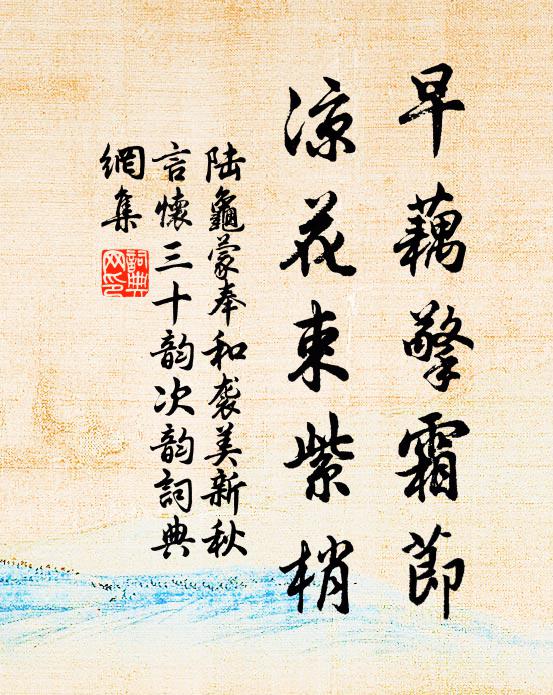 早藕擎霜節
涼花束紫梢
陆龜蒙奉和袭美新秋
言懷三十韵次韵詞典
網集
詞典
网印